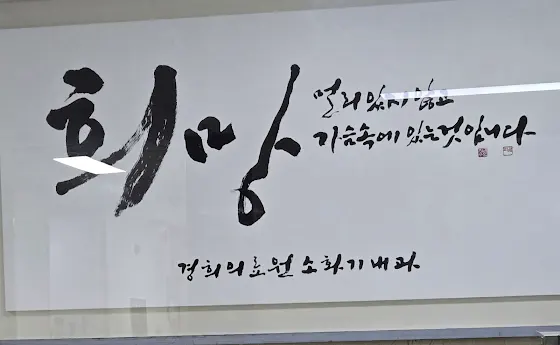 희망
멀리 있지 않고
가슴속에 있는것입니다
경희의료원 소화기내과